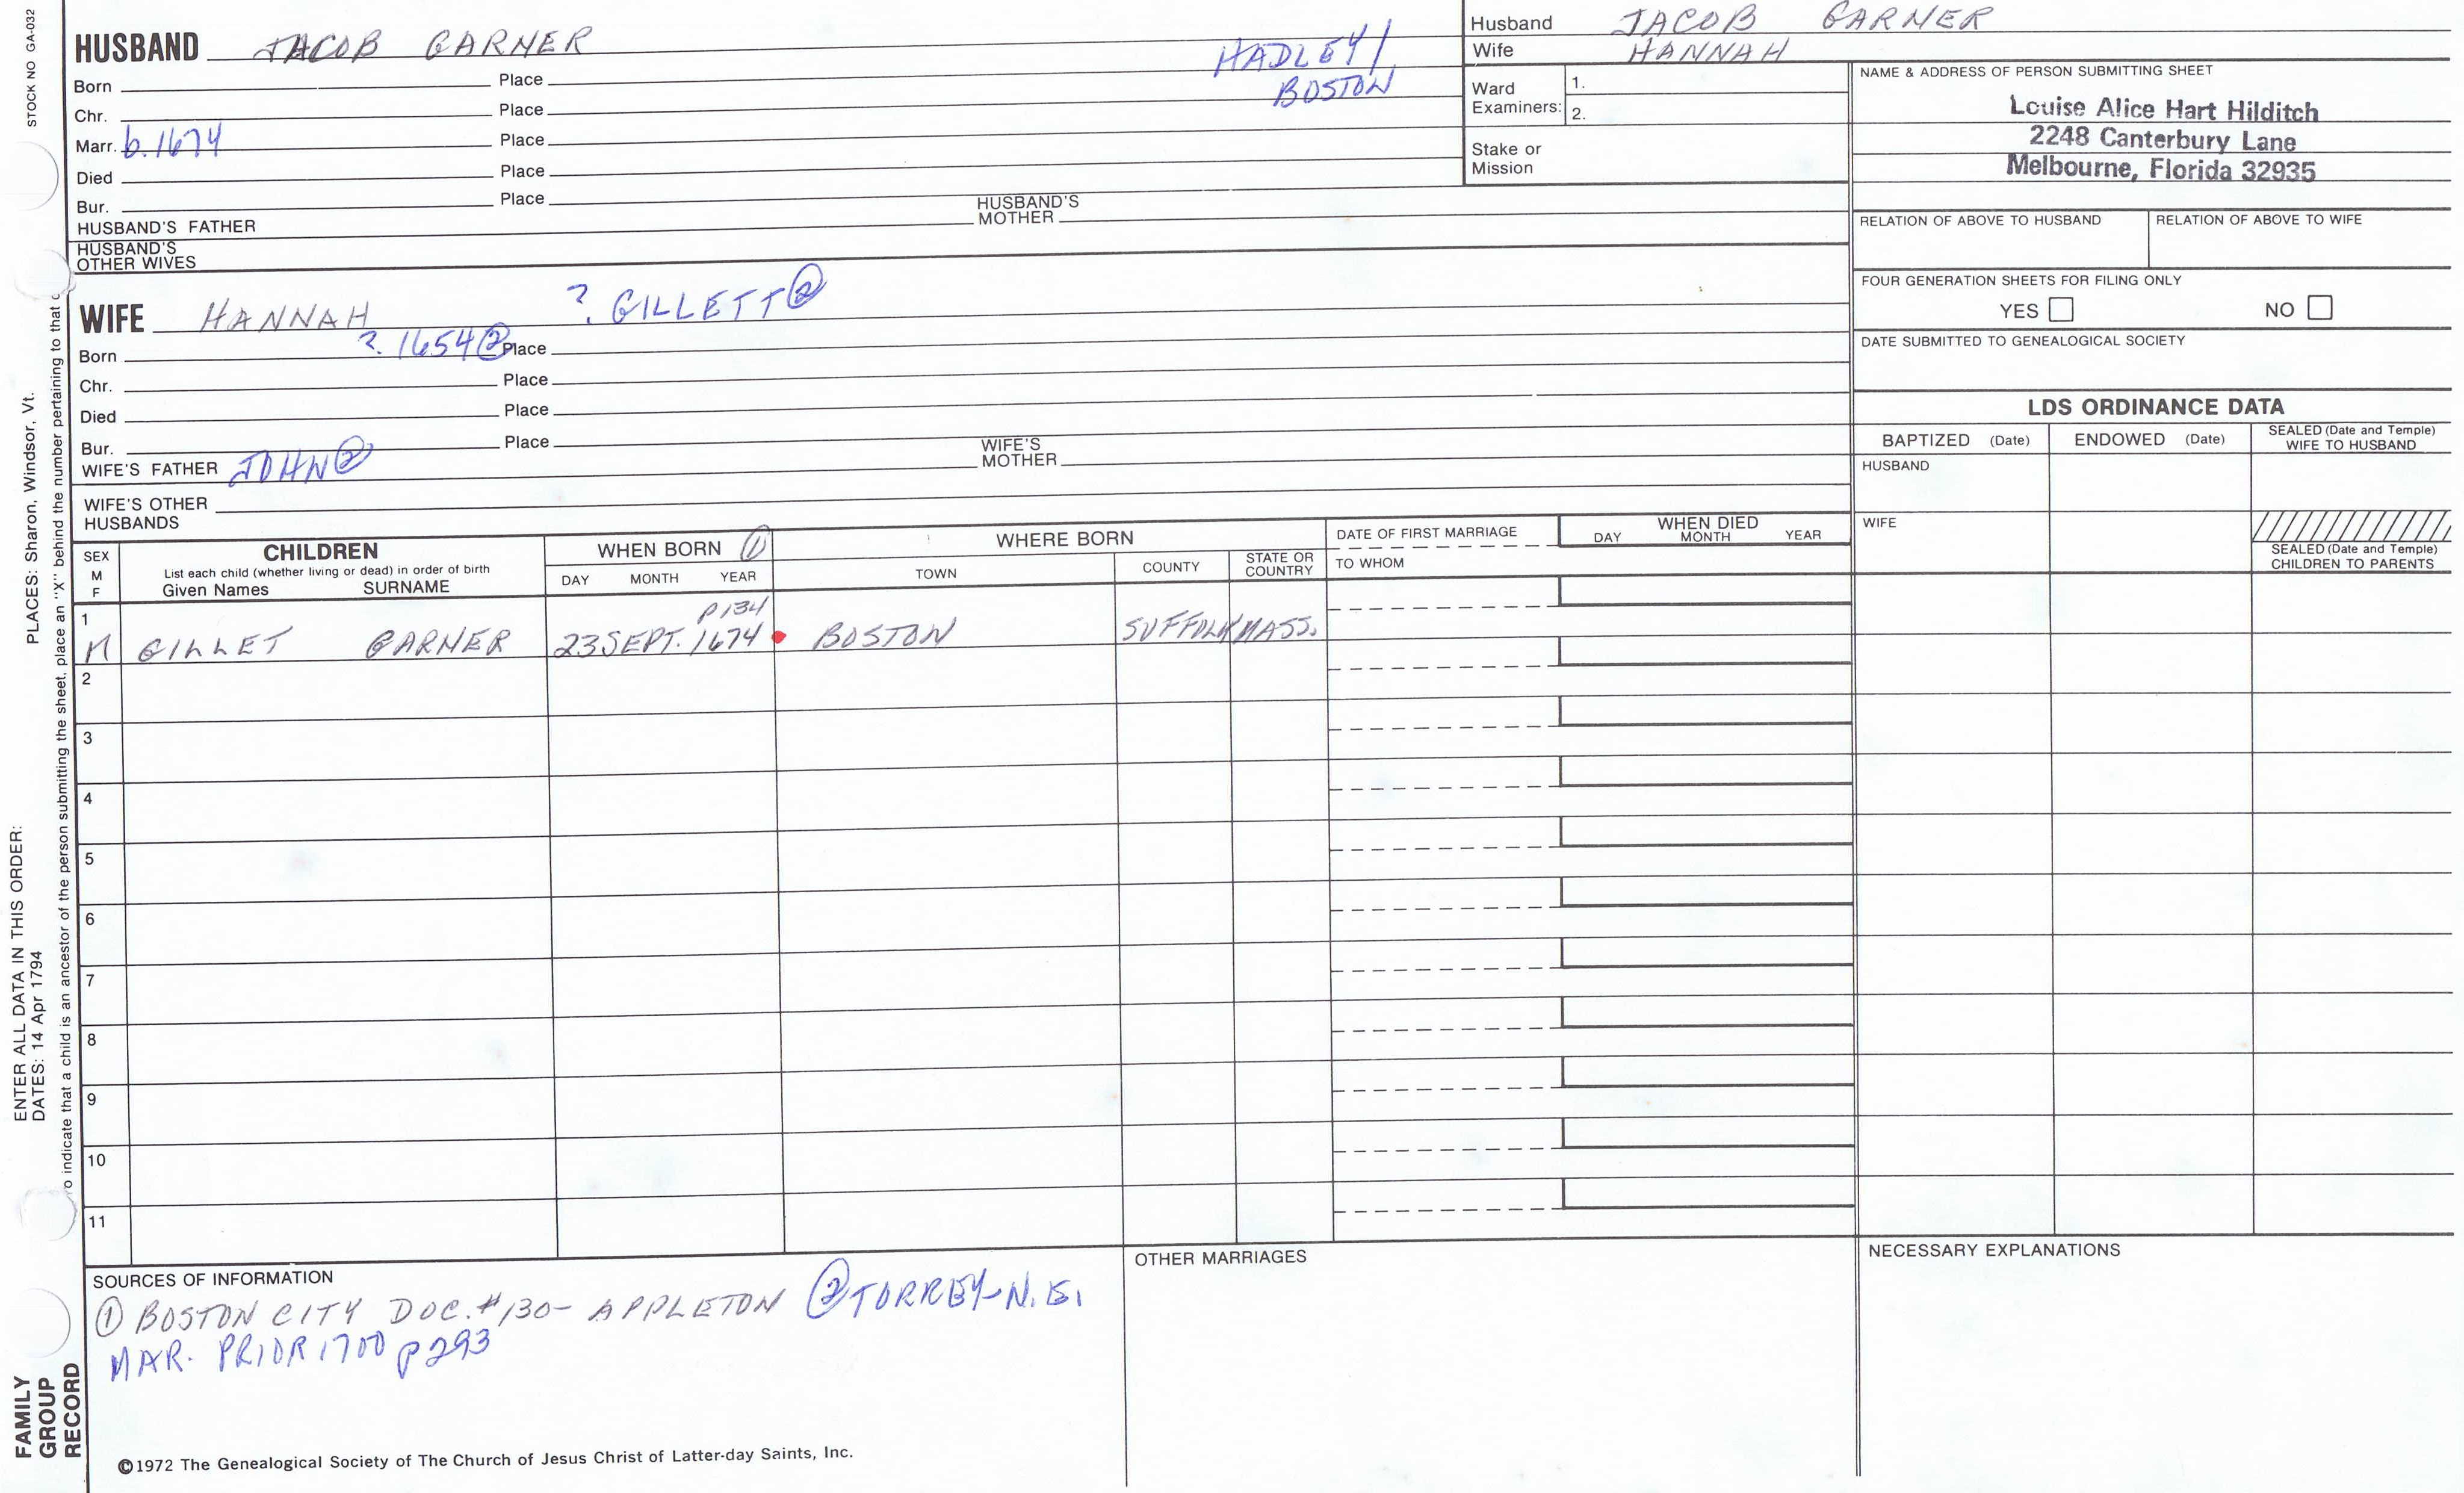 STOCK NO GA-032
HUSBAND JACOB GARNER
HADLEY/
BOSTON
Born Place
Chr. Place
Marr. b. 1674 Place
Died Place
Bur. Place
HUSBAND'S FATHER
HUSBAND'S MOTHER
HUSBAND'S OTHER WIVES
Husband JACOB GARNER
Wife HANNAH
Ward Examiners: 1.
2.
Stake or Mission
NAME & ADDRESS OF PERSON SUBMITTING SHEET
Louise Alice Hart Hilditch
2248 Canterbury Lane
Melbourne, Florida 32935
RELATION OF ABOVE TO HUSBAND RELATION OF ABOVE TO WIFE
FOUR GENERATION SHEETS FOR FILING ONLY
YES NO
DATE SUBMITTED TO GENEALOGICAL SOCIETY
WIFE HANNAH ? GILLETT ②
Born ? 1654 ② Place
Chr. Place
Died Place
Bur. Place
WIFE'S FATHER JOHN ②
WIFE'S MOTHER
WIFE'S OTHER HUSBANDS
LDS ORDINANCE DATA
BAPTIZED (Date) ENDOWED (Date) SEALED (Date and Temple) WIFE TO HUSBAND
HUSBAND
WIFE
SEALED (Date and Temple) CHILDREN TO PARENTS
SEX
M
F
CHILDREN
List each child (whether living or dead) in order of birth
Given Names SURNAME
WHEN BORN ①
DAY MONTH YEAR
WHERE BORN
TOWN COUNTY STATE OR COUNTRY
DATE OF FIRST MARRIAGE
TO WHOM
WHEN DIED
DAY MONTH YEAR
p134
1 M GILLET GARNER 23 SEPT. 1674 BOSTON SUFFOLK MASS.
2
3
4
5
6
7
8
9
10
11
SOURCES OF INFORMATION
① BOSTON CITY DOC. #130- APPLETON ② TORREY-N.E.
MAR. PRIOR 1700 p293
OTHER MARRIAGES
NECESSARY EXPLANATIONS
©1972 The Genealogical Society of The Church of Jesus Christ of Latter-day Saints, Inc.
FAMILY
GROUP
RECORD
ENTER ALL DATA IN THIS ORDER:
DATES: 14 Apr 1794 PLACES: Sharon, Windsor, Vt.
o indicate that a child is an ancestor of the person submitting the sheet, place an "X" behind the number pertaining to that c